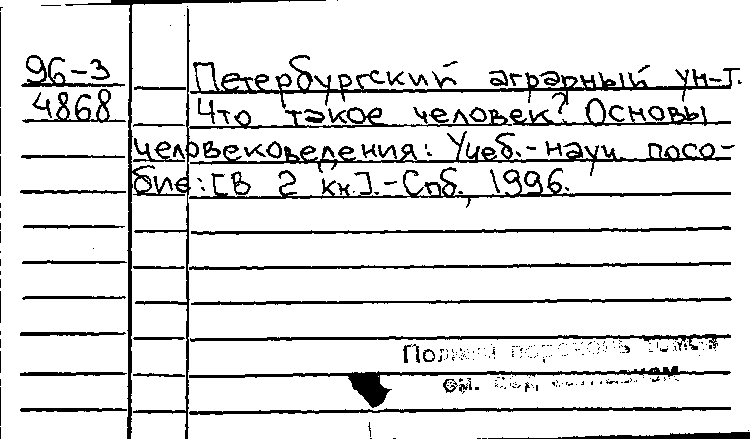 96-3
4868
Петербургский аграрный ун-т.
Что такое человек? Основы
человековедения: Учеб.-науч. посо-
бие: [В 2 кн.].-Спб., 1996.
Полный перечень томов
см. под